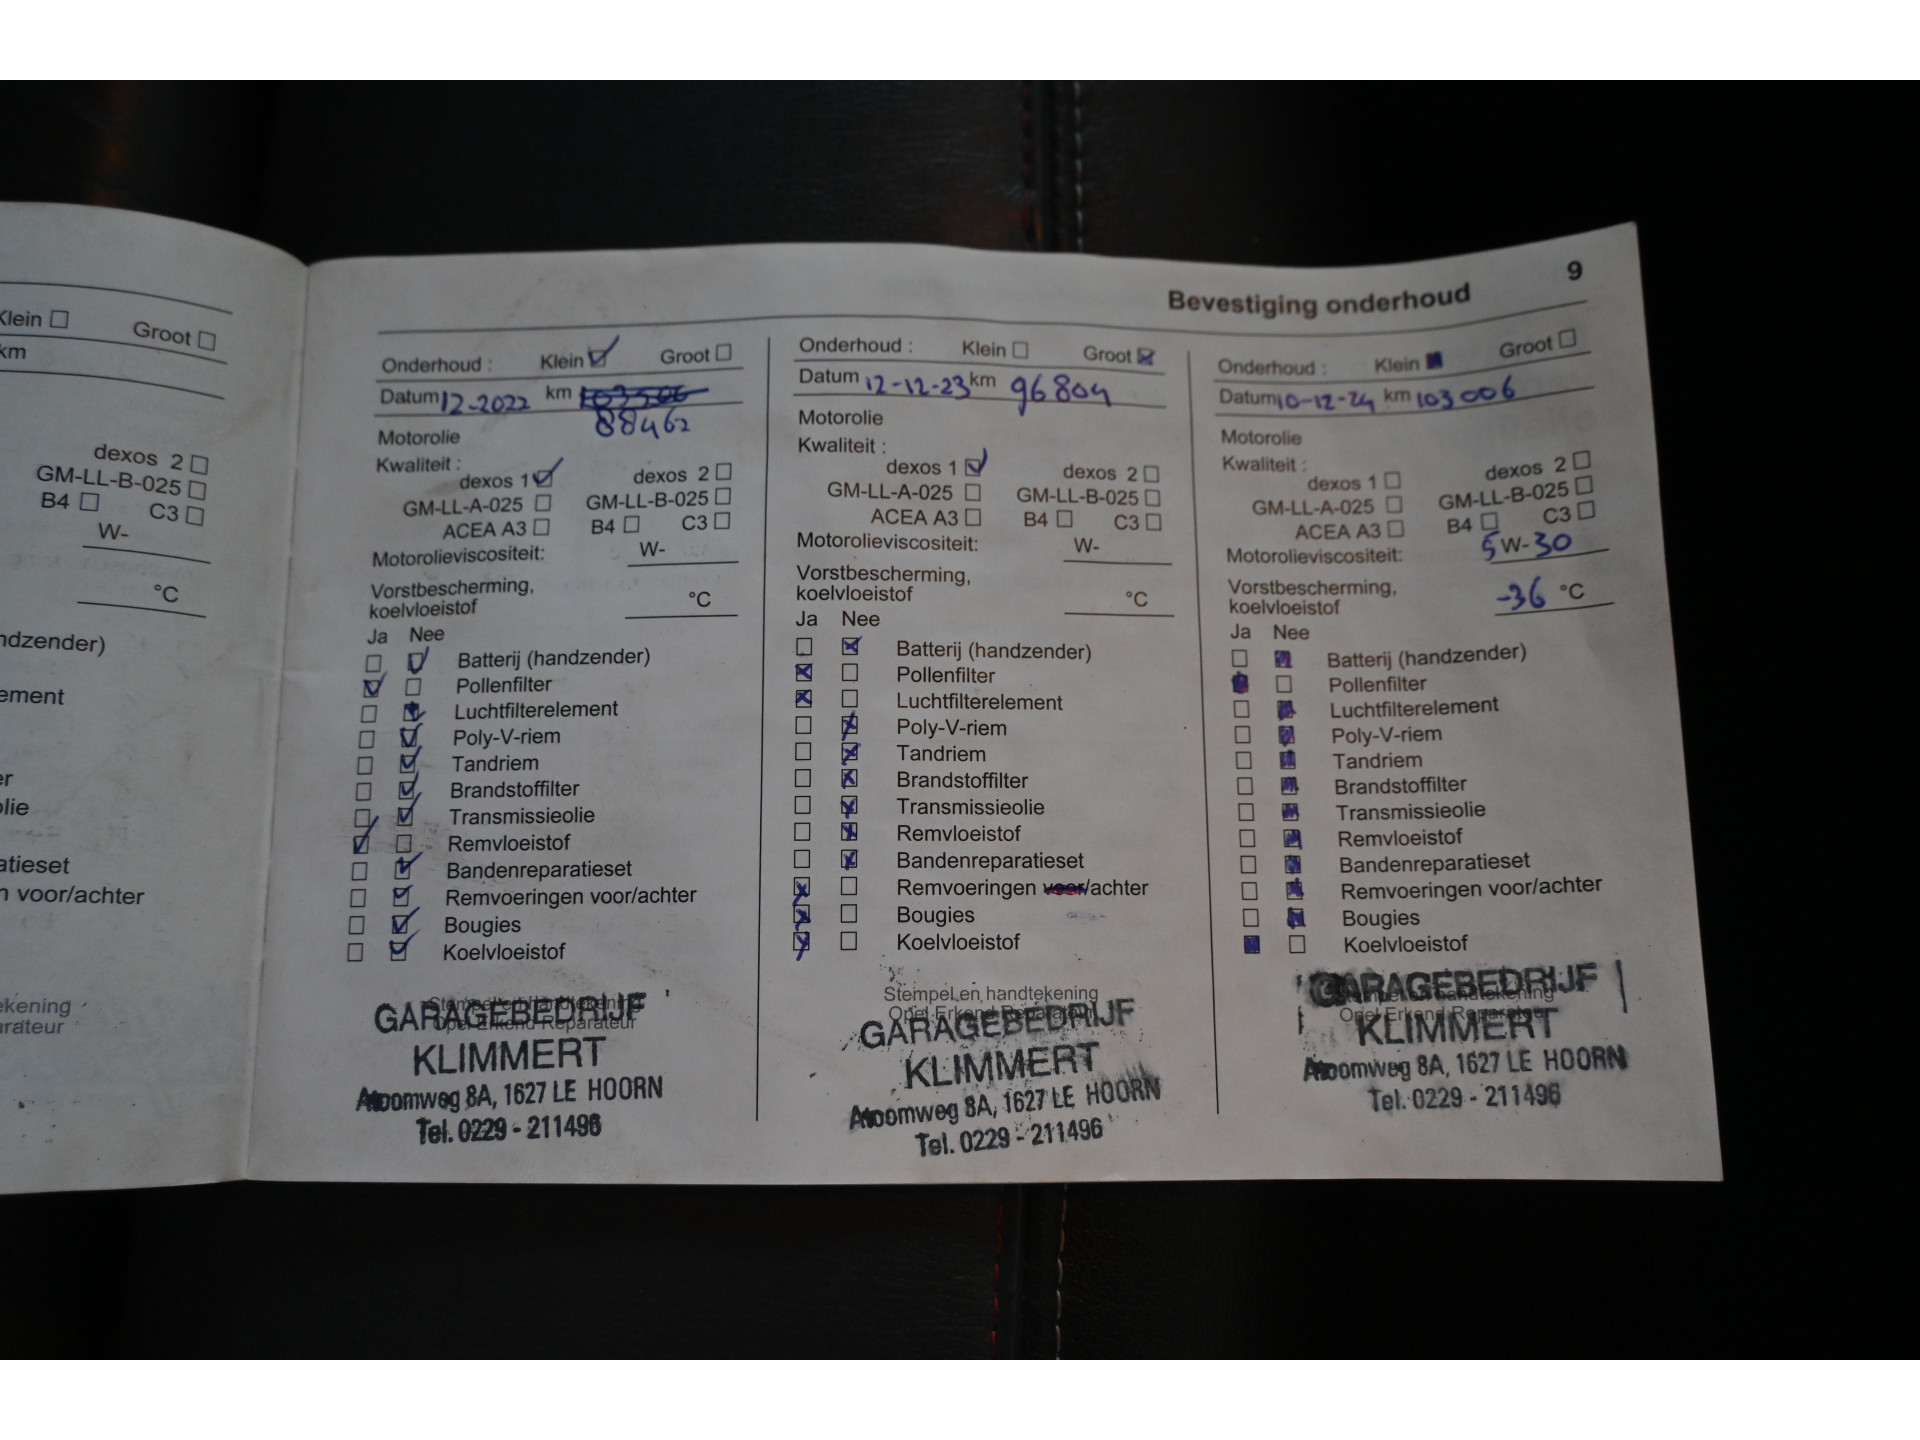 Klein ☐ Groot ☐
km
dexos 2 ☐
GM-LL-B-025 ☐
B4 ☐ C3 ☐
W-
°C
ement
9
Bevestiging onderhoud
Onderhoud : Klein ☑ Groot ☐
Datum 12-2022 km
88462
Motorolie
Kwaliteit :
dexos 1 ☑ dexos 2 ☐
GM-LL-A-025 ☐ GM-LL-B-025 ☐
ACEA A3 ☐ B4 ☐ C3 ☐
Motorolieviscositeit: W-
Vorstbescherming,
koelvloeistof °C
Ja Nee
☐ ☑ Batterij (handzender)
☑ ☐ Pollenfilter
☐ ☑ Luchtfilterelement
☐ ☑ Poly-V-riem
☐ ☑ Tandriem
☐ ☑ Brandstoffilter
☐ ☑ Transmissieolie
☑ ☐ Remvloeistof
☐ ☑ Bandenreparatieset
☐ ☑ Remvoeringen voor/achter
☐ ☑ Bougies
☐ ☑ Koelvloeistof
Stempel en handtekening
Opel Erkend Reparateur
GARAGEBEDRIJF
KLIMMERT
Atoomweg 8A, 1627 LE HOORN
Tel. 0229 - 211496
Onderhoud : Klein ☐ Groot ☒
Datum 12-12-23 km 96804
Motorolie
Kwaliteit :
dexos 1 ☑ dexos 2 ☐
GM-LL-A-025 ☐ GM-LL-B-025 ☐
ACEA A3 ☐ B4 ☐ C3 ☐
Motorolieviscositeit: W-
Vorstbescherming,
koelvloeistof °C
Ja Nee
☐ ☒ Batterij (handzender)
☒ ☐ Pollenfilter
☒ ☐ Luchtfilterelement
☐ ☒ Poly-V-riem
☐ ☒ Tandriem
☐ ☒ Brandstoffilter
☐ ☒ Transmissieolie
☐ ☒ Remvloeistof
☐ ☒ Bandenreparatieset
☒ ☐ Remvoeringen voor/achter
☒ ☐ Bougies
☒ ☐ Koelvloeistof
Stempel en handtekening
Opel Erkend Reparateur
GARAGEBEDRIJF
KLIMMERT
Atoomweg 8A, 1627 LE HOORN
Tel. 0229 - 211496
Onderhoud : Klein ■ Groot ☐
Datum 10-12-24 km 103006
Motorolie
Kwaliteit :
dexos 1 ☐ dexos 2 ☐
GM-LL-A-025 ☐ GM-LL-B-025 ☐
ACEA A3 ☐ B4 ☐ C3 ☐
Motorolieviscositeit: 5 W-30
Vorstbescherming,
koelvloeistof -36 °C
Ja Nee
☐ ■ Batterij (handzender)
■ ☐ Pollenfilter
☐ ■ Luchtfilterelement
☐ ■ Poly-V-riem
☐ ■ Tandriem
☐ ■ Brandstoffilter
☐ ■ Transmissieolie
☐ ■ Remvloeistof
☐ ■ Bandenreparatieset
☐ ■ Remvoeringen voor/achter
☐ ■ Bougies
■ ☐ Koelvloeistof
Stempel en handtekening
Opel Erkend Reparateur
GARAGEBEDRIJF
KLIMMERT
Atoomweg 8A, 1627 LE HOORN
Tel. 0229 - 211496
ndzender)
er
olie
atieset
n voor/achter
ekening
arateur